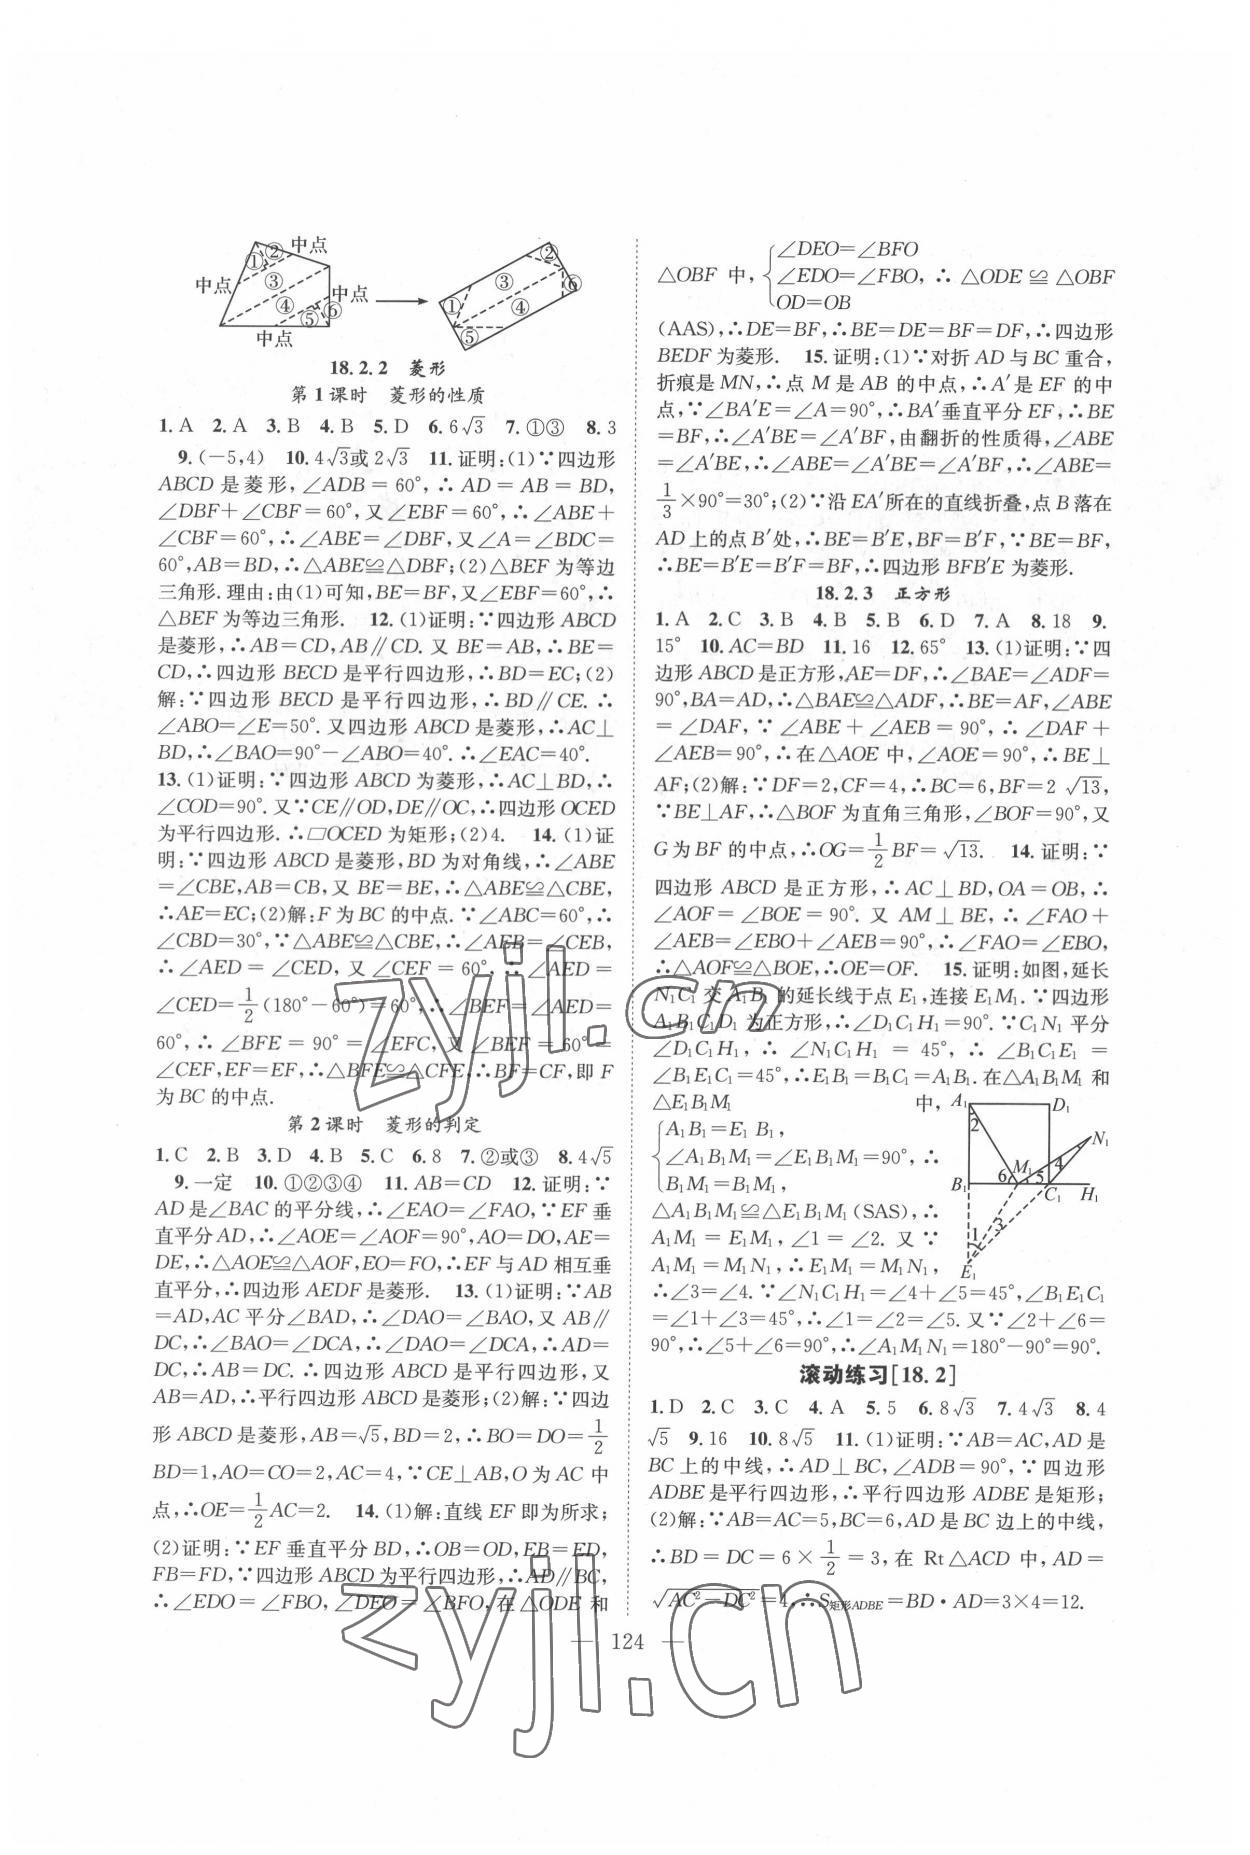 中点
①
②
中点
③
④
中点
⑤
⑥
中点
②
③
⑥
①
④
⑤
18.2.2 菱形
第1课时 菱形的性质
1.A 2.A 3.B 4.B 5.D 6.6√3 7.①③ 8.3
9.(-5,4) 10.4√3或2√3 11.证明:(1)∵四边形
ABCD是菱形,∠ADB=60°,∴AD=AB=BD,
∠DBF+∠CBF=60°,又∠EBF=60°,∴∠ABE+
∠CBF=60°,∴∠ABE=∠DBF,又∠A=∠BDC=
60°,AB=BD,∴△ABE≌△DBF;(2)△BEF为等边
三角形.理由:由(1)可知,BE=BF,又∠EBF=60°,∴
△BEF为等边三角形. 12.(1)证明:∵四边形ABCD
是菱形,∴AB=CD,AB∥CD.又BE=AB,∴BE=
CD,∴四边形BECD是平行四边形,∴BD=EC;(2)
解:∵四边形BECD是平行四边形,∴BD∥CE.∴
∠ABO=∠E=50°.又四边形ABCD是菱形,∴AC⊥
BD,∴∠BAO=90°-∠ABO=40°.∴∠EAC=40°.
13.(1)证明:∵四边形ABCD为菱形,∴AC⊥BD,∴
∠COD=90°.又∵CE∥OD,DE∥OC,∴四边形OCED
为平行四边形.∴▱OCED为矩形;(2)4. 14.(1)证
明:∵四边形ABCD是菱形,BD为对角线,∴∠ABE
=∠CBE,AB=CB,又BE=BE,∴△ABE≌△CBE,
∴AE=EC;(2)解:F为BC的中点.∵∠ABC=60°,∴
∠CBD=30°,∵△ABE≌△CBE,∴∠AEB=∠CEB,
∴∠AED=∠CED,又∠CEF=60°,∴∠AED=
∠CED=1/2(180°-60°)=60°,∴∠BEF=∠AED=
60°,∴∠BFE=90°=∠EFC,又∠BEF=60°=
∠CEF,EF=EF,∴△BFE≌△CFE,∴BF=CF,即F
为BC的中点.
第2课时 菱形的判定
1.C 2.B 3.D 4.B 5.C 6.8 7.②或③ 8.4√5
9.一定 10.①②③④ 11.AB=CD 12.证明:∵
AD是∠BAC的平分线,∴∠EAO=∠FAO,∵EF垂
直平分AD,∴∠AOE=∠AOF=90°,AO=DO,AE=
DE,∴△AOE≌△AOF,EO=FO,∴EF与AD相互垂
直平分,∴四边形AEDF是菱形. 13.(1)证明:∵AB
=AD,AC平分∠BAD,∴∠DAO=∠BAO,又AB∥
DC,∴∠BAO=∠DCA,∴∠DAO=∠DCA,∴AD=
DC,∴AB=DC.∴四边形ABCD是平行四边形,又
AB=AD,∴平行四边形ABCD是菱形;(2)解:∵四边
形ABCD是菱形,AB=√5,BD=2,∴BO=DO=1/2
BD=1,AO=CO=2,AC=4,∵CE⊥AB,O为AC中
点,∴OE=1/2AC=2. 14.(1)解:直线EF即为所求;
(2)证明:∵EF垂直平分BD,∴OB=OD,EB=ED,
FB=FD,∵四边形ABCD为平行四边形,∴AD∥BC,
∴∠EDO=∠FBO,∠DEO=∠BFO,在△ODE和
△OBF中,{∠DEO=∠BFO
∠EDO=∠FBO,∴△ODE≌△OBF
OD=OB
(AAS),∴DE=BF,∴BE=DE=BF=DF,∴四边形
BEDF为菱形. 15.证明:(1)∵对折AD与BC重合,
折痕是MN,∴点M是AB的中点,∴A′是EF的中
点,∵∠BA′E=∠A=90°,∴BA′垂直平分EF,∴BE
=BF,∴∠A′BE=∠A′BF,由翻折的性质得,∠ABE
=∠A′BE,∴∠ABE=∠A′BE=∠A′BF,∴∠ABE=
1/3×90°=30°;(2)∵沿EA′所在的直线折叠,点B落在
AD上的点B′处,∴BE=B′E,BF=B′F,∵BE=BF,
∴BE=B′E=B′F=BF,∴四边形BFB′E为菱形.
18.2.3 正方形
1.A 2.C 3.B 4.B 5.B 6.D 7.A 8.18 9.
15° 10.AC=BD 11.16 12.65° 13.(1)证明:∵四
边形ABCD是正方形,AE=DF,∴∠BAE=∠ADF=
90°,BA=AD,∴△BAE≌△ADF,∴BE=AF,∠ABE
=∠DAF,∵∠ABE+∠AEB=90°,∴∠DAF+
∠AEB=90°,∴在△AOE中,∠AOE=90°,∴BE⊥
AF;(2)解:∵DF=2,CF=4,∴BC=6,BF=2√13,
∵BE⊥AF,∴△BOF为直角三角形,∠BOF=90°,又
G为BF的中点,∴OG=1/2BF=√13. 14.证明:∵
四边形ABCD是正方形,∴AC⊥BD,OA=OB,∴
∠AOF=∠BOE=90°.又AM⊥BE,∴∠FAO+
∠AEB=∠EBO+∠AEB=90°,∴∠FAO=∠EBO,
∴△AOF≌△BOE,∴OE=OF. 15.证明:如图,延长
N₁C₁交A₁B₁的延长线于点E₁,连接E₁M₁.∵四边形
A₁B₁C₁D₁为正方形,∴∠D₁C₁H₁=90°.∵C₁N₁平分
∠D₁C₁H₁,∴∠N₁C₁H₁=45°,∴∠B₁C₁E₁=
∠B₁E₁C₁=45°,∴E₁B₁=B₁C₁=A₁B₁.在△A₁B₁M₁和
△E₁B₁M₁中,
{A₁B₁=E₁B₁,
∠A₁B₁M₁=∠E₁B₁M₁=90°,∴
B₁M₁=B₁M₁,
△A₁B₁M₁≌△E₁B₁M₁(SAS),∴
A₁M₁=E₁M₁,∠1=∠2.又∵
A₁M₁=M₁N₁,∴E₁M₁=M₁N₁,
A₁
D₁
2
N₁
M₁
6
5
4
B₁
C₁
H₁
1
3
E₁
∴∠3=∠4.∵∠N₁C₁H₁=∠4+∠5=45°,∠B₁E₁C₁
=∠1+∠3=45°,∴∠1=∠2=∠5.又∵∠2+∠6=
90°,∴∠5+∠6=90°,∴∠A₁M₁N₁=180°-90°=90°.
滚动练习[18.2]
1.D 2.C 3.C 4.A 5.5 6.8√3 7.4√3 8.4
√5 9.16 10.8√5 11.(1)证明:∵AB=AC,AD是
BC上的中线,∴AD⊥BC,∠ADB=90°,∵四边形
ADBE是平行四边形,∴平行四边形ADBE是矩形;
(2)解:∵AB=AC=5,BC=6,AD是BC边上的中线,
∴BD=DC=6×1/2=3,在Rt△ACD中,AD=
√(AC²-DC²)=4,∴S矩形ADBE=BD·AD=3×4=12.
— 124 —
zyjl.cn
zyjl.cn